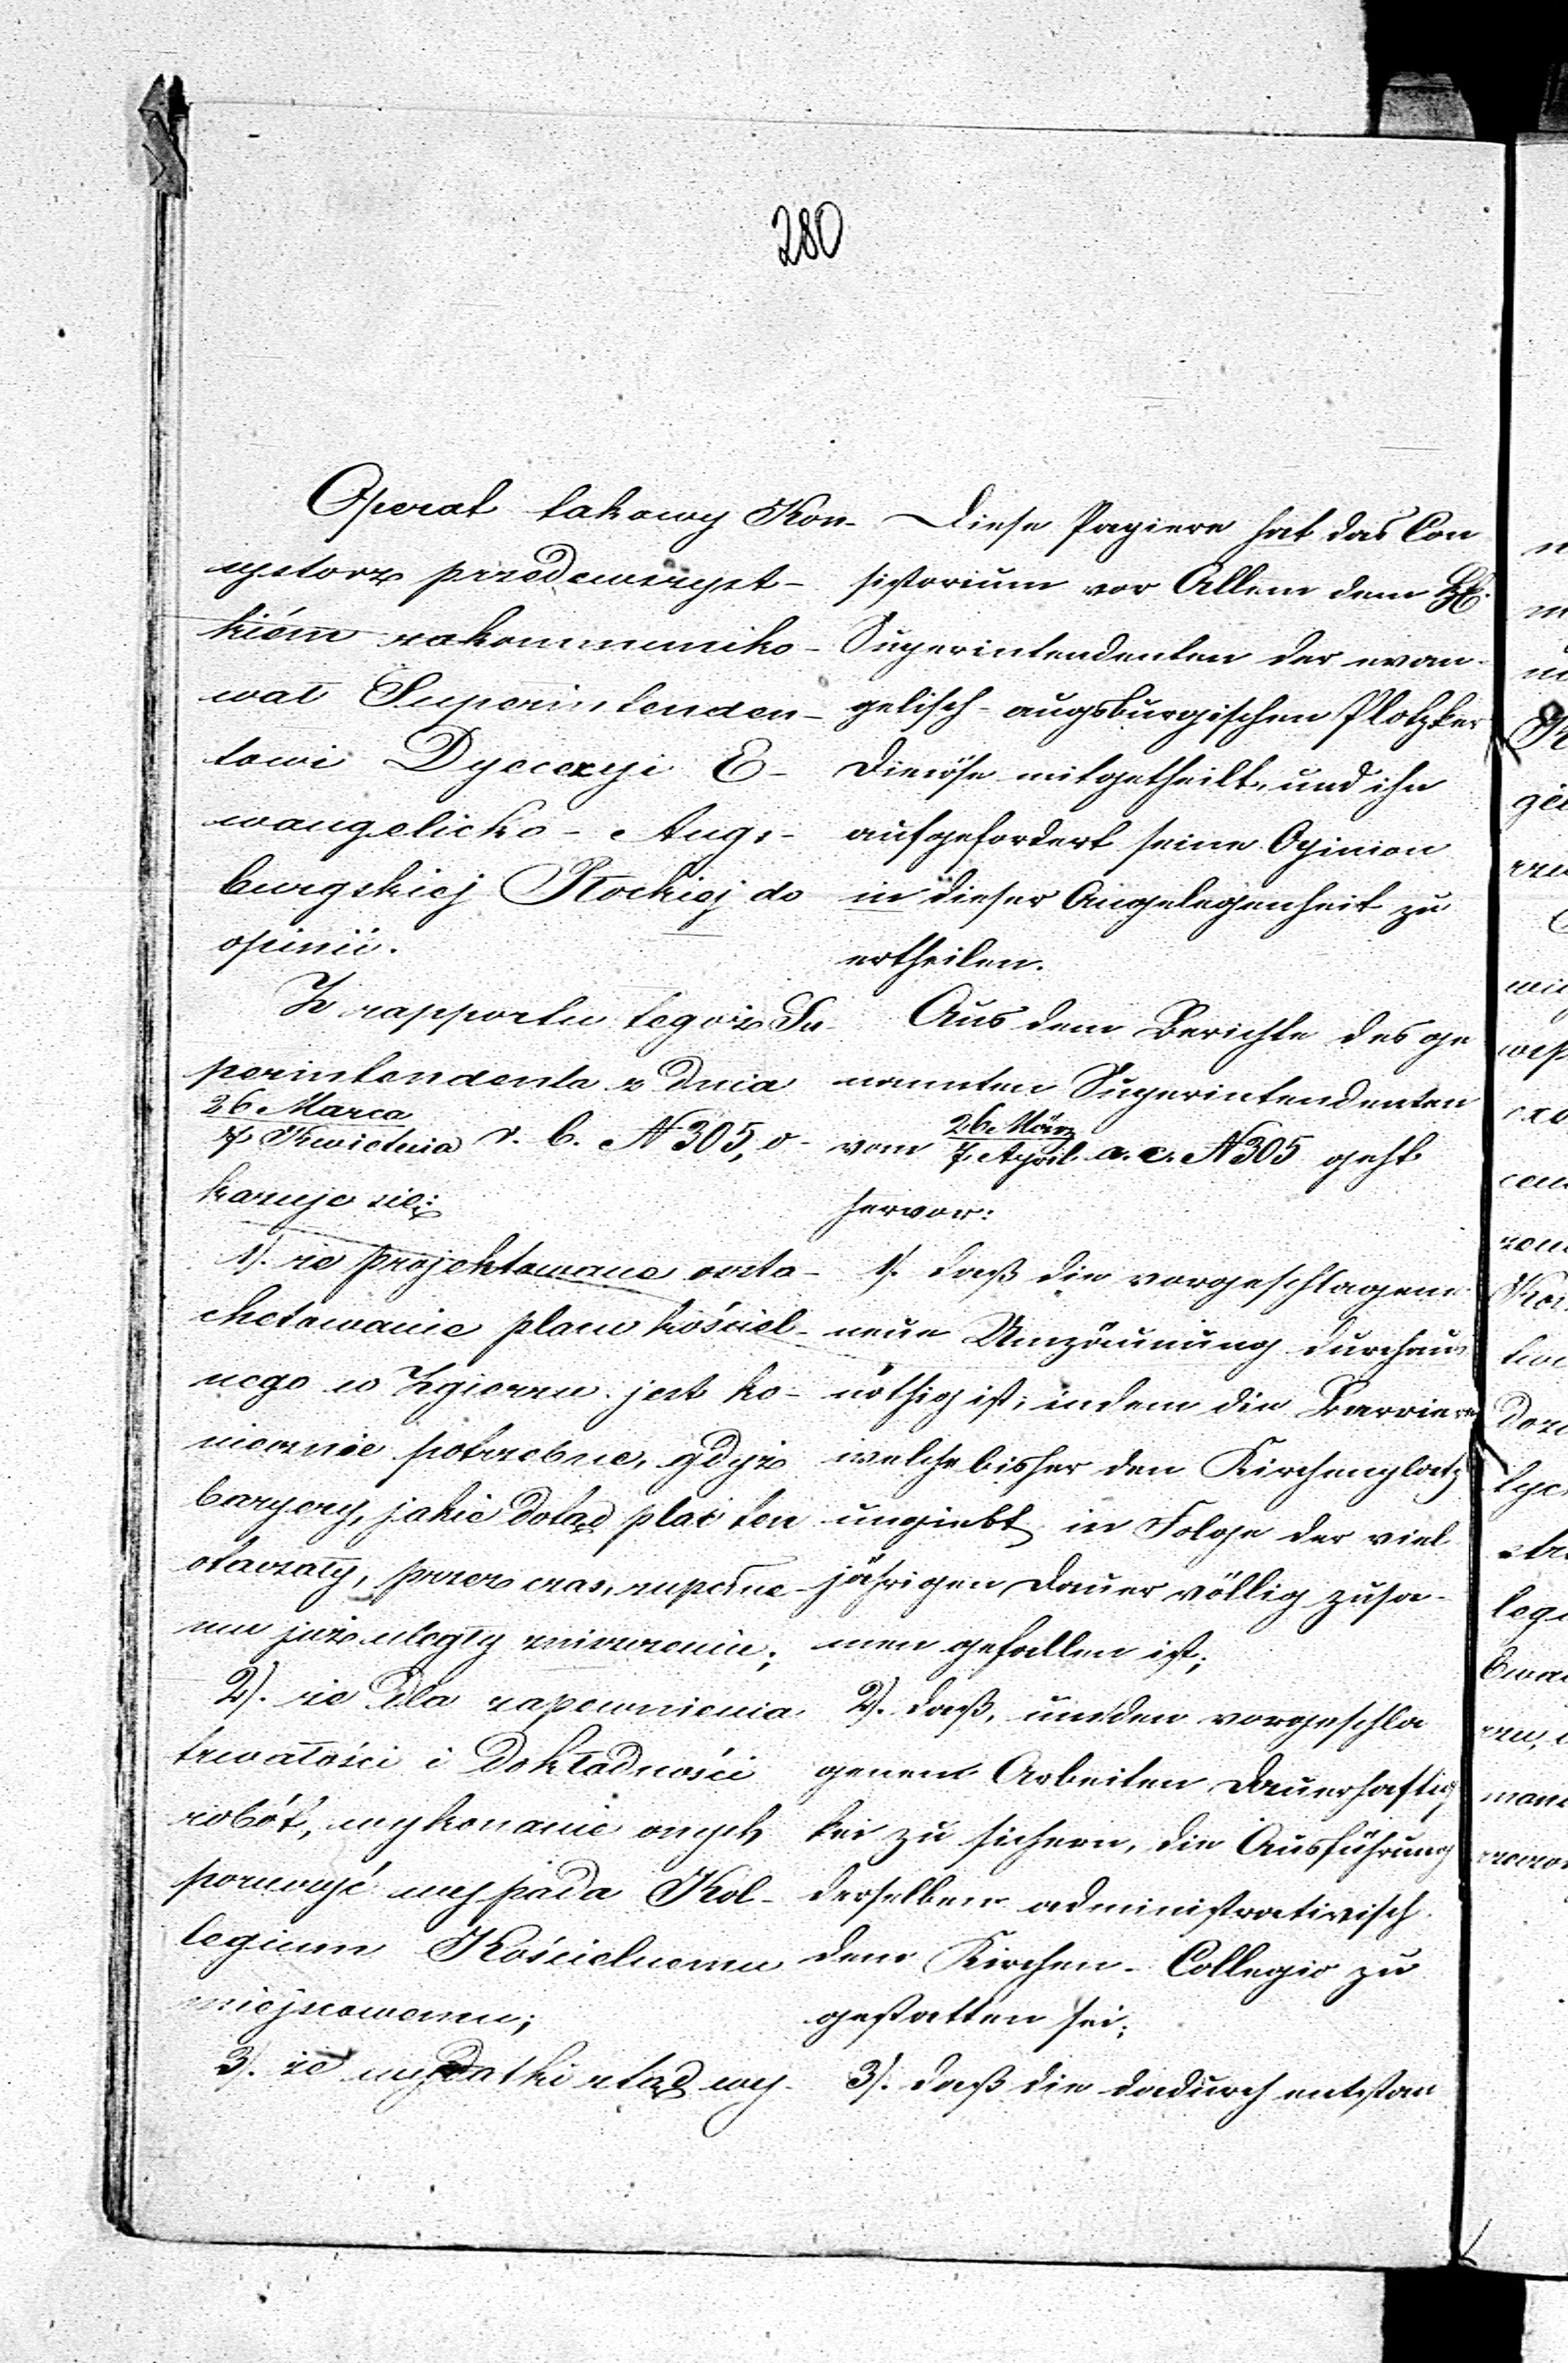 280
Operat takowy Kon-
systorz przedewszyst-
kiém zakommuniko-
wał Superintenden-
towi Dyecezyi E-
wangelicko-Augs-
burgskiej Płockiej do
opinii.
Z rapportu tegoż Su-
perintendenta z dnia
26 Marca
7 Kwietnia r. b. N 305, o-
kazuje się:
1). że projektowane oszta-
chetowanie placu kościel-
nego w Zgierzu jest ko-
niecznie potrzebne, gdyż
baryery, jakie dotąd plac ten
otaczały, przez czas, zupełne-
mu już uległy zniszczeniu;
2). że dla zapewnienia
trwałości i dokładności
robót, wykonanie onych
poruczyć wypada Kol-
legium Kościelnemu
miejscowemu;
3). że wydatki ztąd wy-
Diese Papiere hat das Con
sistorium vor Allem dem H.
Superintendenten der evan-
gelisch-augsburgischen Plotzker
Diecöse mitgetheilt, und ihn
aufgefordert seine Opinion
in dieser Angelegenheit zu
ertheilen.
Aus dem Berichte des ge
nannten Superintendenten
vom 26. März
7. April a. c. N 305 geht
hervor:
1). daß die vorgeschlagene
neue Umzäunung durchaus
nöthig ist; indem die Barriere
welche bisher den Kirchenplatz
umgiebt, in Folge der viel
jährigen Dauer völlig zusa-
men gefallen ist;
2). daß, um den vorgeschla
genen Arbeiten Dauerhaftig
kei zu sichern, die Ausführung
derselben administrativisch
dem Kirchen-Collegio zu
gestatten sei;
3). daß die dadurch entstan